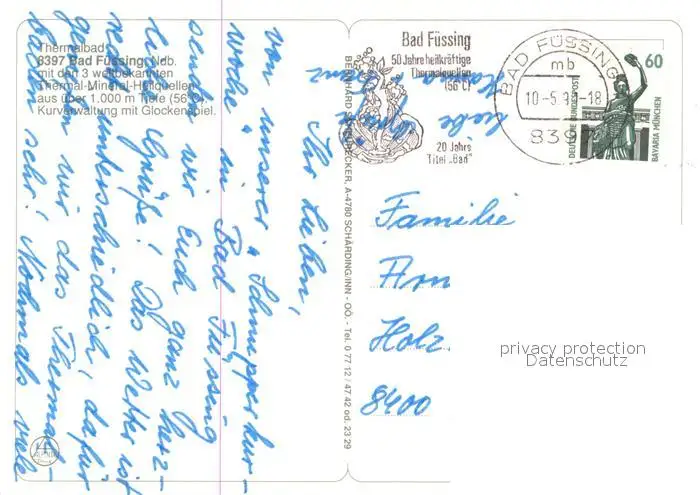 Thermalbad
8397 Bad Füssing, Ndb.
mit den 3 weltbekannten
Thermal-Mineral-Heilquellen
aus über 1.000 m Tiefe (56° C).
Kurverwaltung mit Glockenspiel.
Ihr Lieben,
von unserer "Schnupperkur-
woche" in Bad Füssing
senden wir Euch ganz herz-
liche Grüße! Das Wetter ist
recht unterschiedlich, dafür
genießen wir das Thermal-
baden sehr! Nochmals viele
liebe Grüße
BERNHARD A-4780 SCHÄRDING/INN - OÖ. - Tel. 0 77 12 / 47 42 od. 23 29
Bad Füssing
50 Jahre heilkräftige
Thermalquellen
(56°C)
20 Jahre
Titel „Bad"
BAD FÜSSING
mb
10-5. -18
839
60
DEUTSCHE BUNDESPOST
BAVARIA MÜNCHEN
Familie
Arn
Holz
8400
privacy protection
Datenschutz